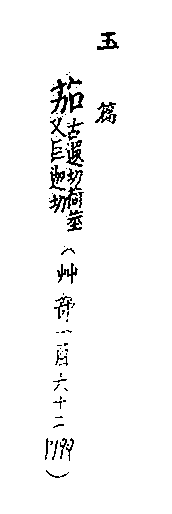 玉篇
茄古遐切荷莖
又巨迦切
（艸部一百六十二
）